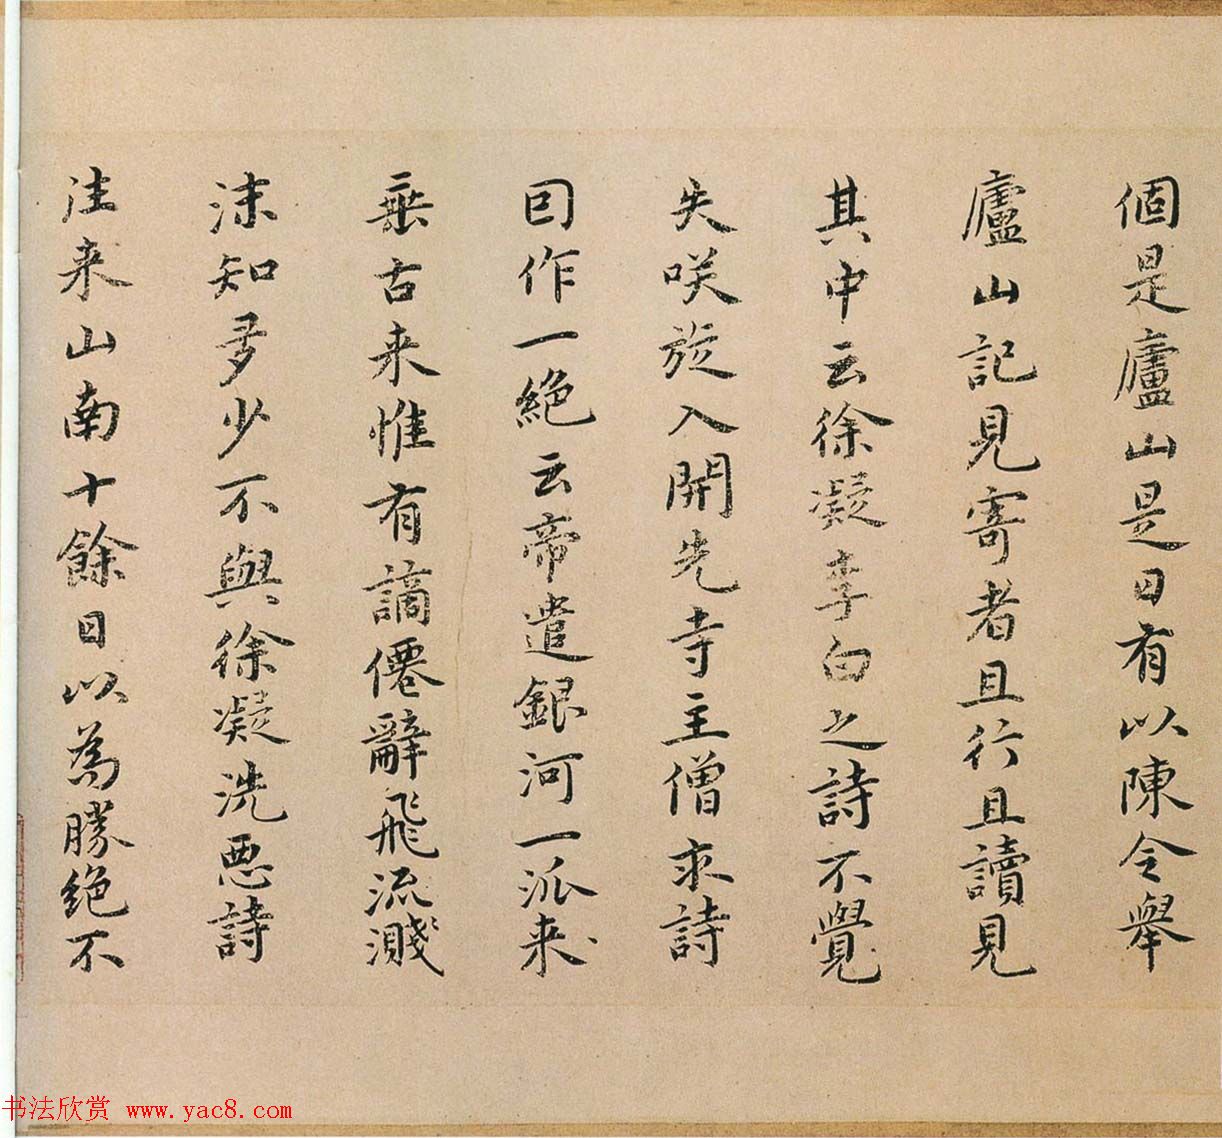 個是廬山是日有以陳令舉
廬山記見寄者且行且讀見
其中云徐凝李白之詩不覺
失咲旋入開先寺主僧求詩
囙作一絕云帝遣銀河一派来
垂古来惟有謫僊辭飛流濺
沫知多少不與徐凝洗惡詩
往来山南十餘日以為勝絕不
书法欣赏 www.yac8.com